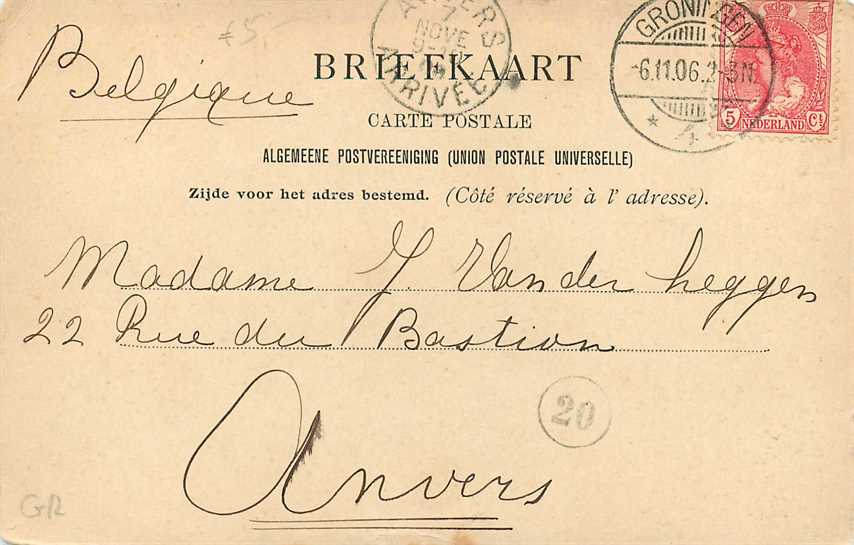 £5,-
ANVERS
7
NOVE
ARRIVÉE
GRONINGEN
-6.11.06.2-3N
* 4 *
5 NEDERLAND Ct
Belgique
BRIEFKAART
CARTE POSTALE
ALGEMEENE POSTVEREENIGING (UNION POSTALE UNIVERSELLE)
Zijde voor het adres bestemd. (Côté réservé à l'adresse).
Madame J. Van der heggen
22 Rue du Bastion
20
Anvers
GR